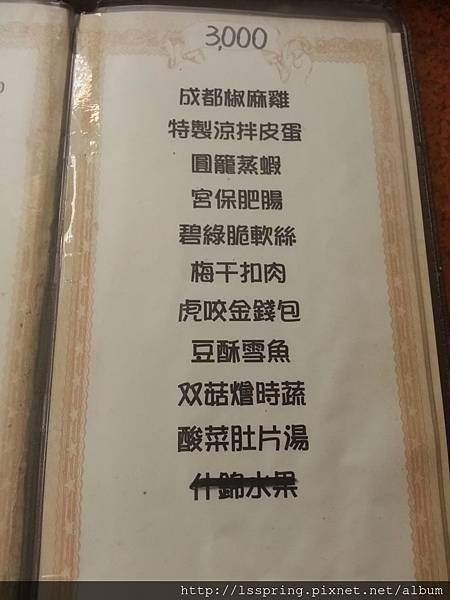 3,000
成都椒麻雞
特製涼拌皮蛋
圓籠蒸蝦
宮保肥腸
碧綠脆軟絲
梅干扣肉
虎咬金錢包
豆酥雪魚
双菇燴時蔬
酸菜肚片湯
什錦水果
http://lsspring.pixnet.net/album